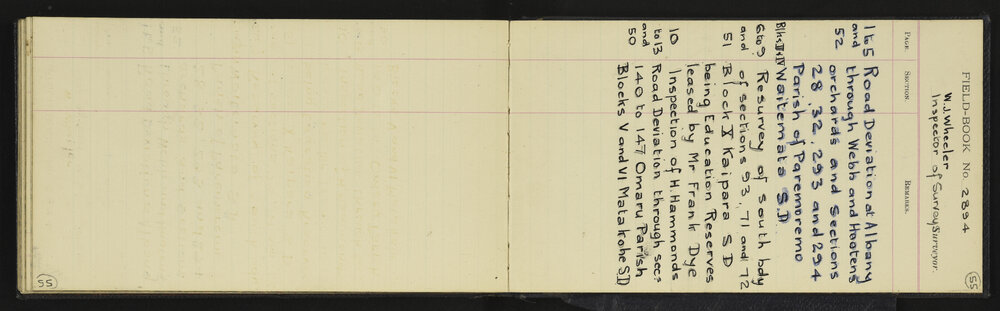 55
FIELD-BOOK No. 2894
W.J. Wheeler
Inspector of Survey Surveyor.
PAGE. SECTION. REMARKS.
1 to 5 Road Deviation at Albany
and through Webb and Hootens
52 orchards and Sections
28, 32, 293 and 294
Parish of Paremoremo
Blks II & IV Waitemata S.D.
6 to 9 Resurvey of South bdy
and of Sections 93, 71 and 72
51 Block X Kaipara S D
being Education Reserves
leased by Mr Frank Dye
10 Inspection of H. Hammonds
to 13 Road Deviation through secs
and 140 to 147 Omaru Parish
50 Blocks V and VI Matakohe S.D
55